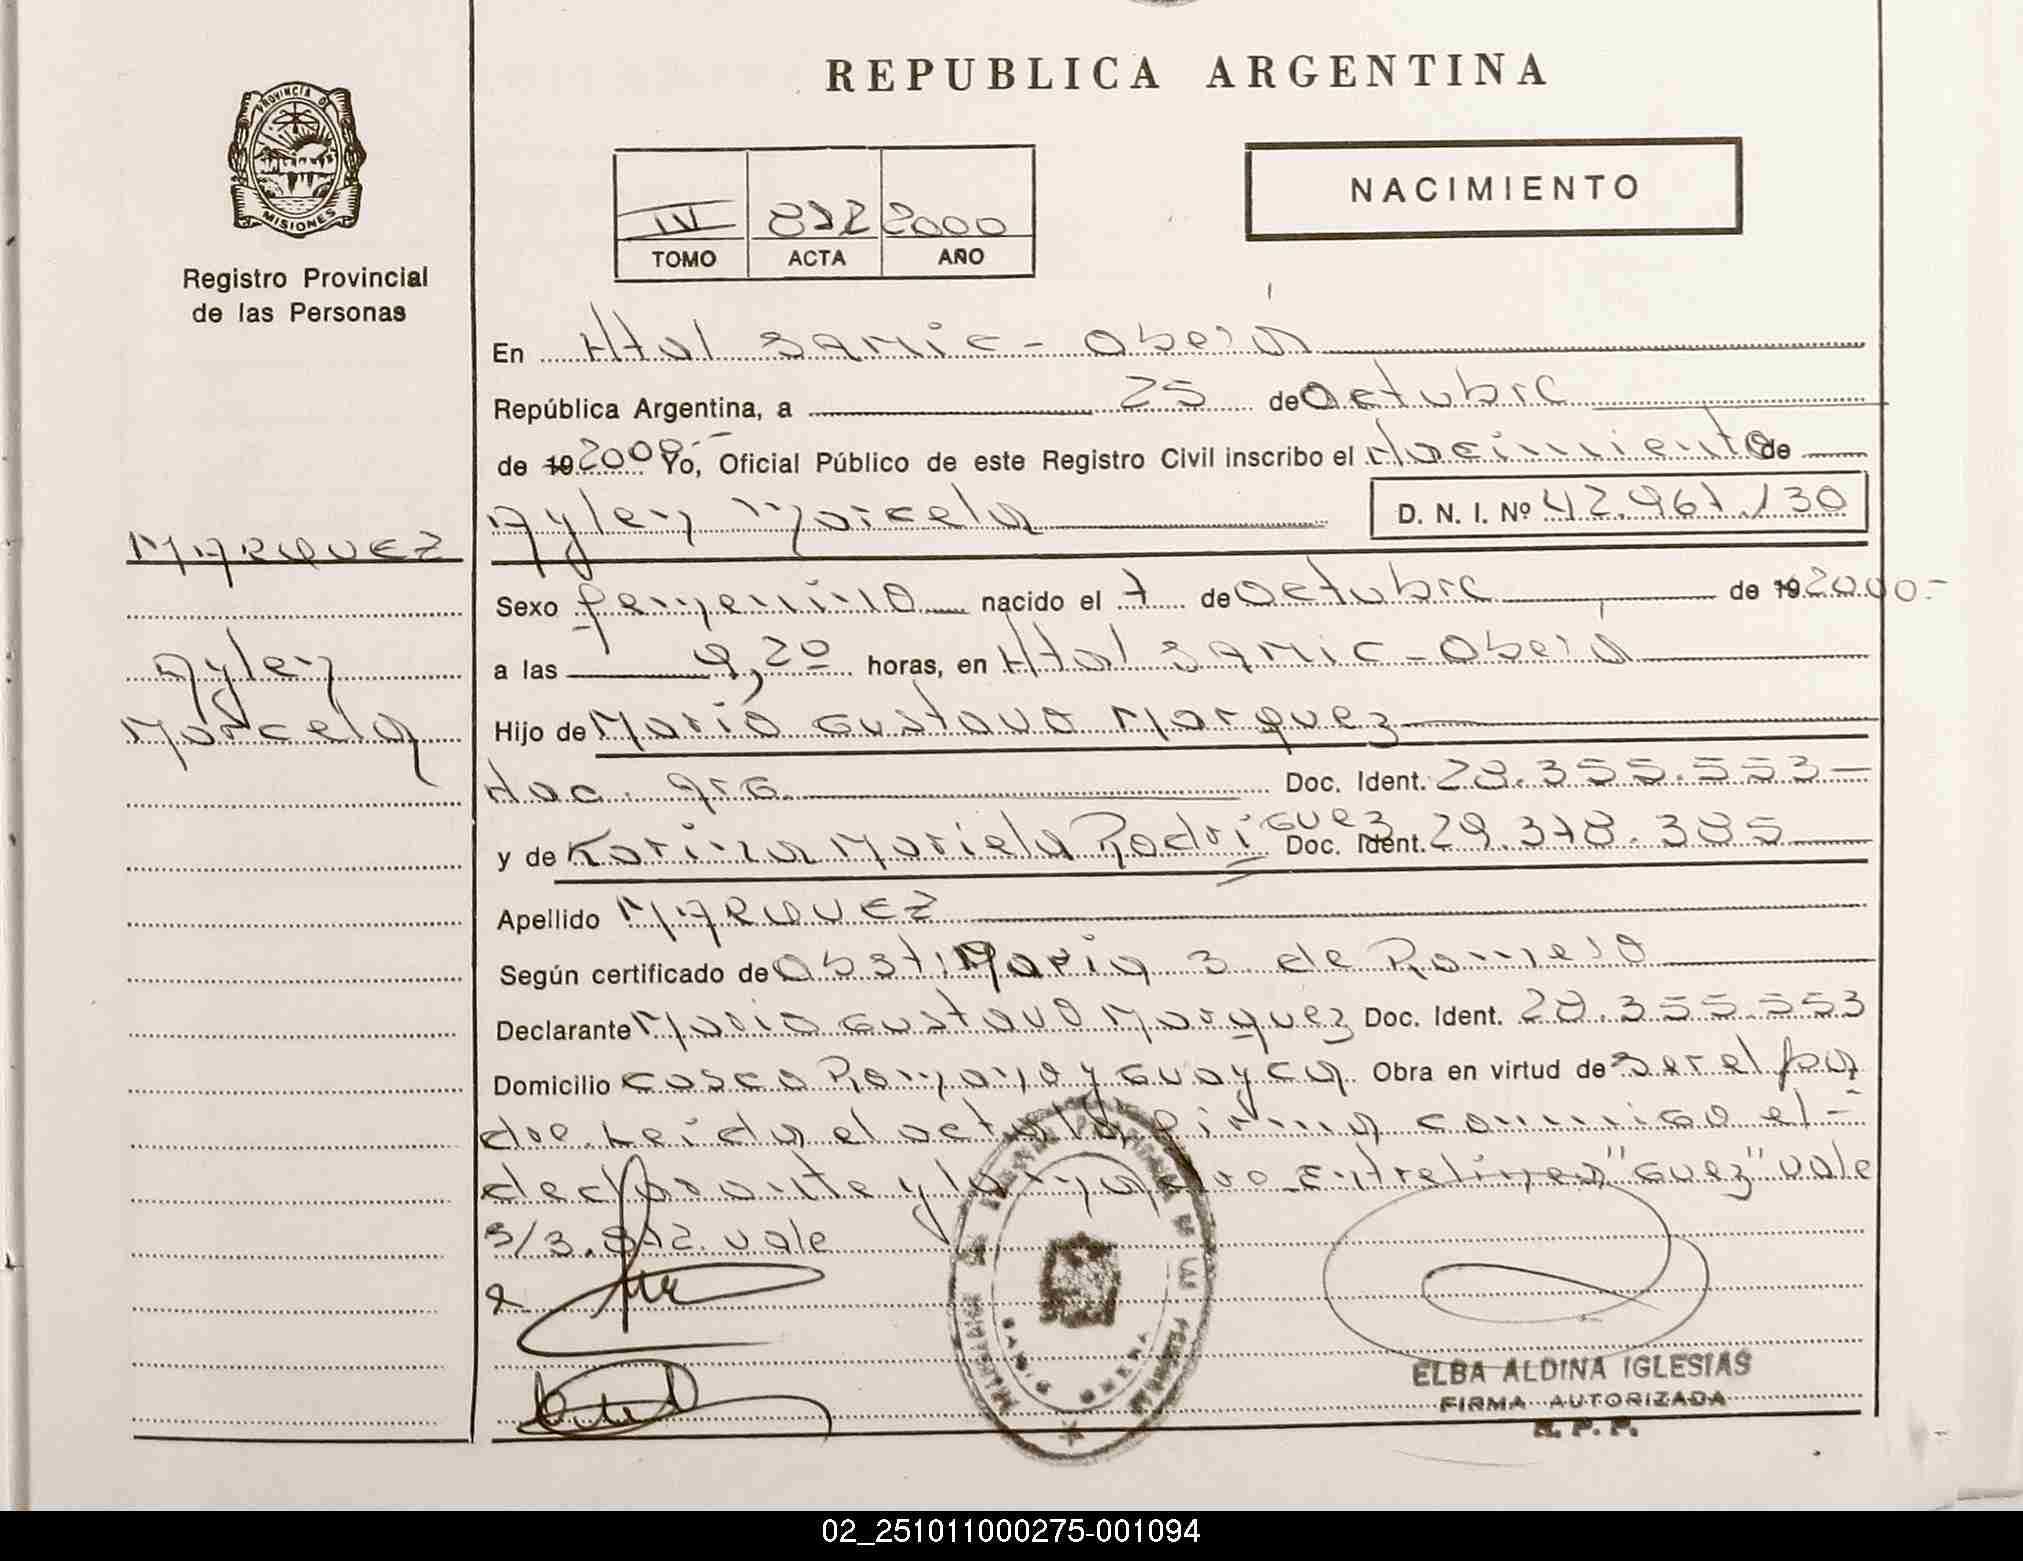 REPUBLICA ARGENTINA
PROVINCIA DE
MISIONES
Registro Provincial
de las Personas
NACIMIENTO
IV 872 2000
TOMO ACTA AÑO
En Htal SAMIC - Oberá
República Argentina, a 25 de Octubre
de 19 2000.- Yo, Oficial Público de este Registro Civil inscribo el Nacimiento de
Aylen Marcela D. N. I. Nº 42.967.130
MARQUEZ
Aylen
Marcela
Sexo femenino nacido el 7 de Octubre de 19 2000.-
a las 9,20 horas, en Htal SAMIC - Oberá
Hijo de Mario Gustavo Marquez
Nac. arg. Doc. Ident. 28.355.553 -
y de Karina Mariela Rodriguez Doc. Ident. 29.378.385
Apellido MARQUEZ
Según certificado de Obst. Maria S. de Romero
Declarante Mario Gustavo Marquez Doc. Ident. 28.355.553
Domicilio Casco Romano y Guayca Obra en virtud de ser el pa
dre. Leida el acta la firma conmigo el -
declarante y la madre. Entrelineas "Guez" vale
S/3. 872. vale
ELBA ALDINA IGLESIAS
FIRMA AUTORIZADA
R. P. P.
02_251011000275-001094